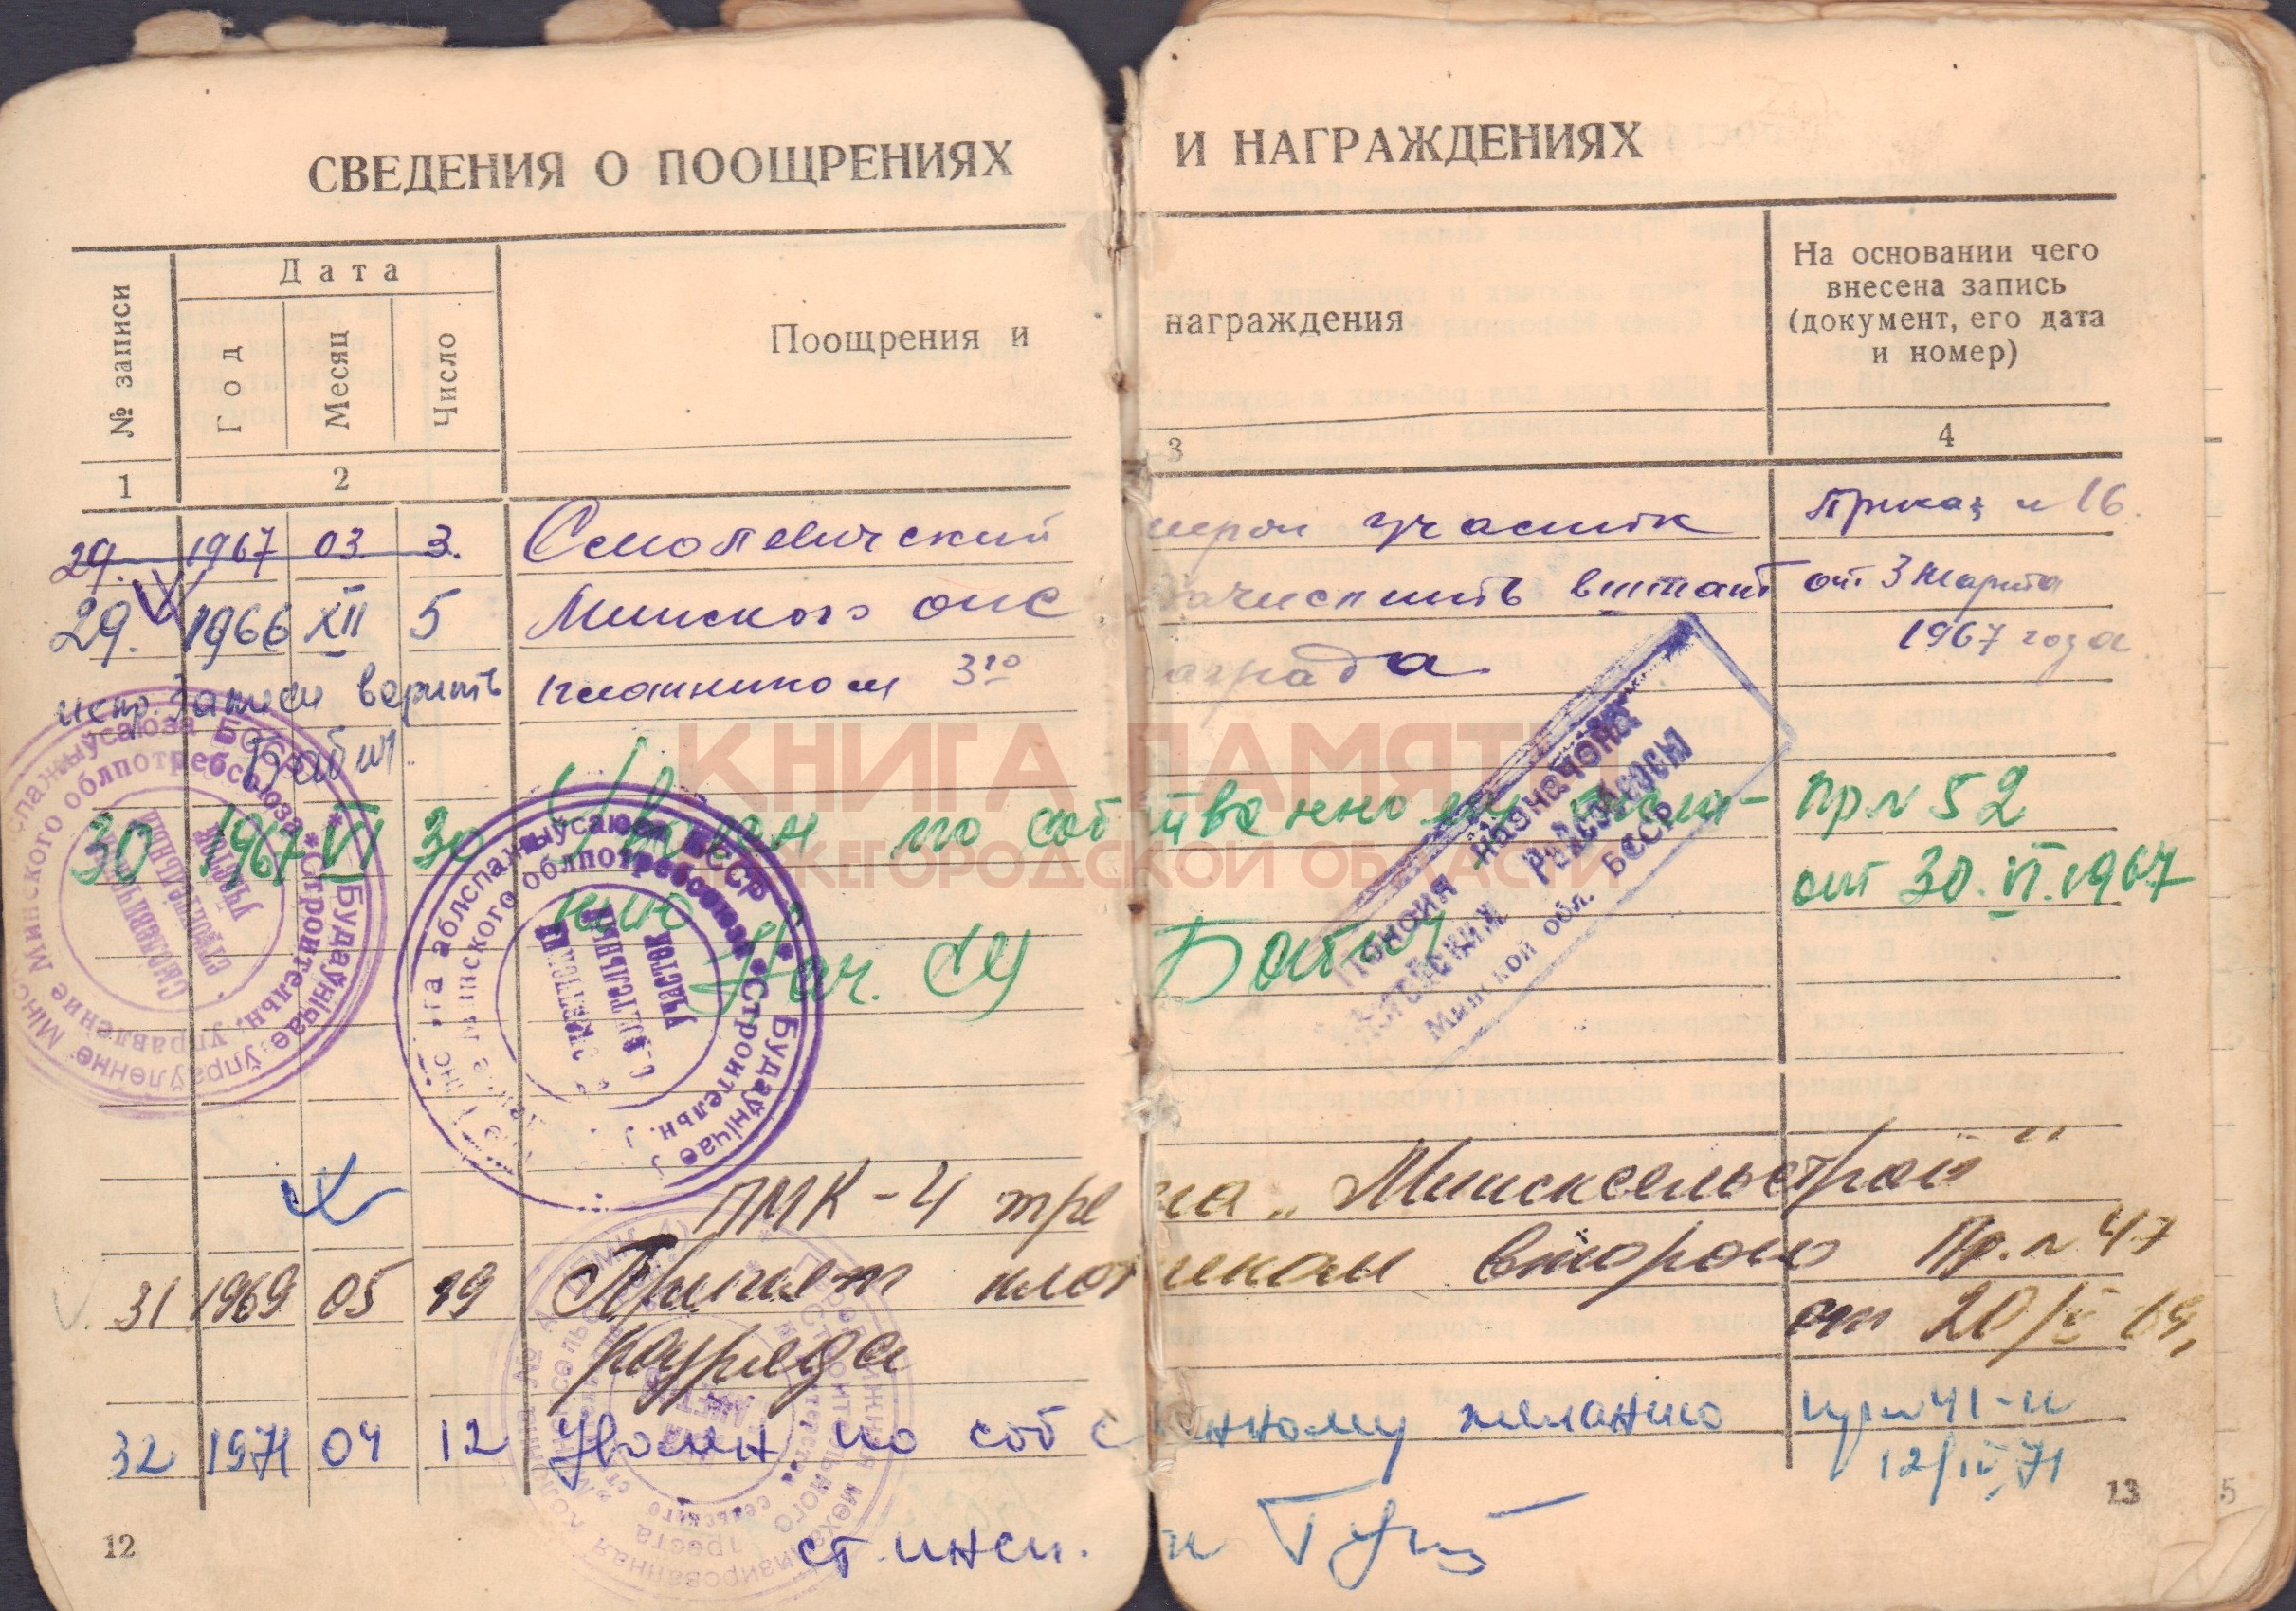 СВЕДЕНИЯ О ПООЩРЕНИЯХ И НАГРАЖДЕНИЯХ
№ записи
Дата
Год
Месяц
Число
Поощрения и награждения
На основании чего
внесена запись
(документ, его дата
и номер)
1 2 3 4
29. 1967 03. 3. Смолевичский участок Приказ н 16.
29. 1966 XII 5 Минского ОПС зачислить в штат от 3 марта
1967 года
испр. записи верить плотником 3го
Бабич.
КНИГА ПАМЯТИ
НИЖЕГОРОДСКОЙ ОБЛАСТИ
30 1967 VI 30 Уволен по собственному жела- пр N 52
нию от 30.VI.1967
Нач. СУ Бабич
Пенсия назначена
райсобесом
Минской обл. БССР
Будаўнічае ўпраўленне
Строительн. управление Минского облпотребсоюза
Смолевичский
строительный
участок
Будаўнічае
аблспажыўсаюза БССР
Строительн.
Минского облпотребсоюза
строительный
участок
ПМК-4 треста „Минсксельстрой"
31 1969 05 19 Принят плотником второго Пр. N 47
разряда от 20/V 69,
32 1971 04 12 Уволен по собственному желанию пр N 41-к
12/IV 71
ст. инсп.
12
13
5